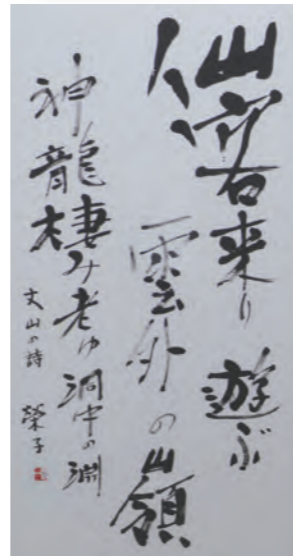 仙客来り遊ぶ
雲外の山嶺
神龍棲み老ゆ洞中の淵
丈山の詩 榮子